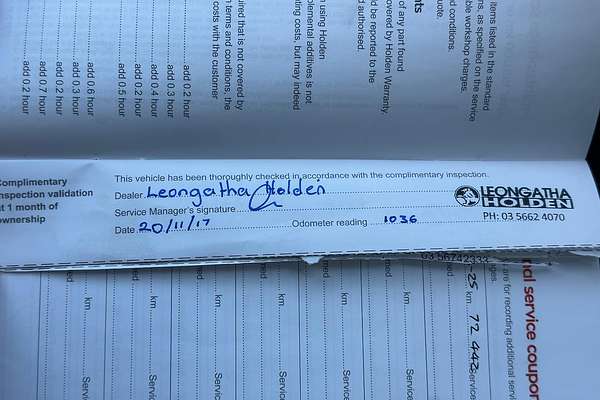 Complimentary
inspection validation
at 1 month of
ownership
This vehicle has been thoroughly checked in accordance with the complimentary inspection.
Dealer Leongatha Holden
Service Manager's signature
Date 20/11/17 Odometer reading 1036
LEONGATHA
HOLDEN
PH: 03 5662 4070
items listed in the standard
as specified on the service
workshop charges.
conditions.
quote.
of any part found
covered by Holden Warranty,
be reported to the
authorised.
using Holden
supplemental additives is not
costs, but may indeed
required that is not covered by
terms and conditions, the
costs with the customer
add 0.2 hour
add 0.3 hour
add 0.4 hour
add 0.5 hour
add 0.6 hour
add 0.3 hour
add 0.7 hour
add 0.2 hour
service coupon
are for recording additional
03 56742333
25 km 72 442 Service
km Service
km Service
km Service
km Service
km Service
km Service